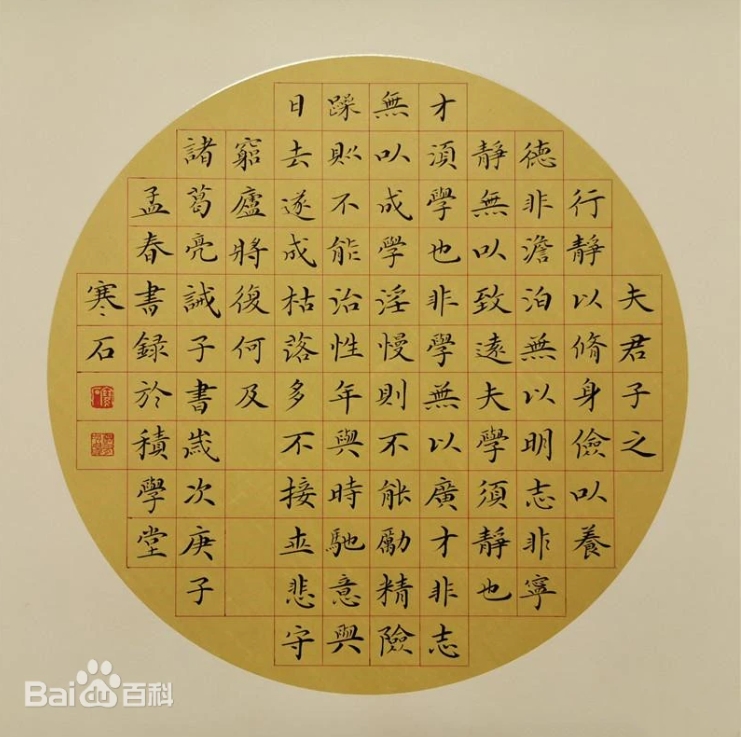 夫君子之
行靜以脩身儉以養
德非澹泊無以明志非寧
靜無以致遠夫學須靜也
才須學也非學無以廣才非志
無以成學淫慢則不能勵精險
躁則不能治性年與時馳意與
日去遂成枯落多不接世悲守
窮廬將復何及
諸葛亮誡子書歲次庚子
孟春書録於積學堂
寒石
Bai du 百科